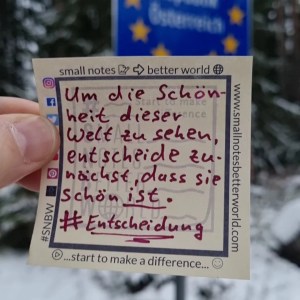 Österreich
small notes ⇨ better world
Um die Schön-
heit dieser
Welt zu sehen,
entscheide zu-
nächst, dass sie
schön ist.
#Entscheidung
...start to make a difference...
#SNBW
www.smallnotesbetterworld.com